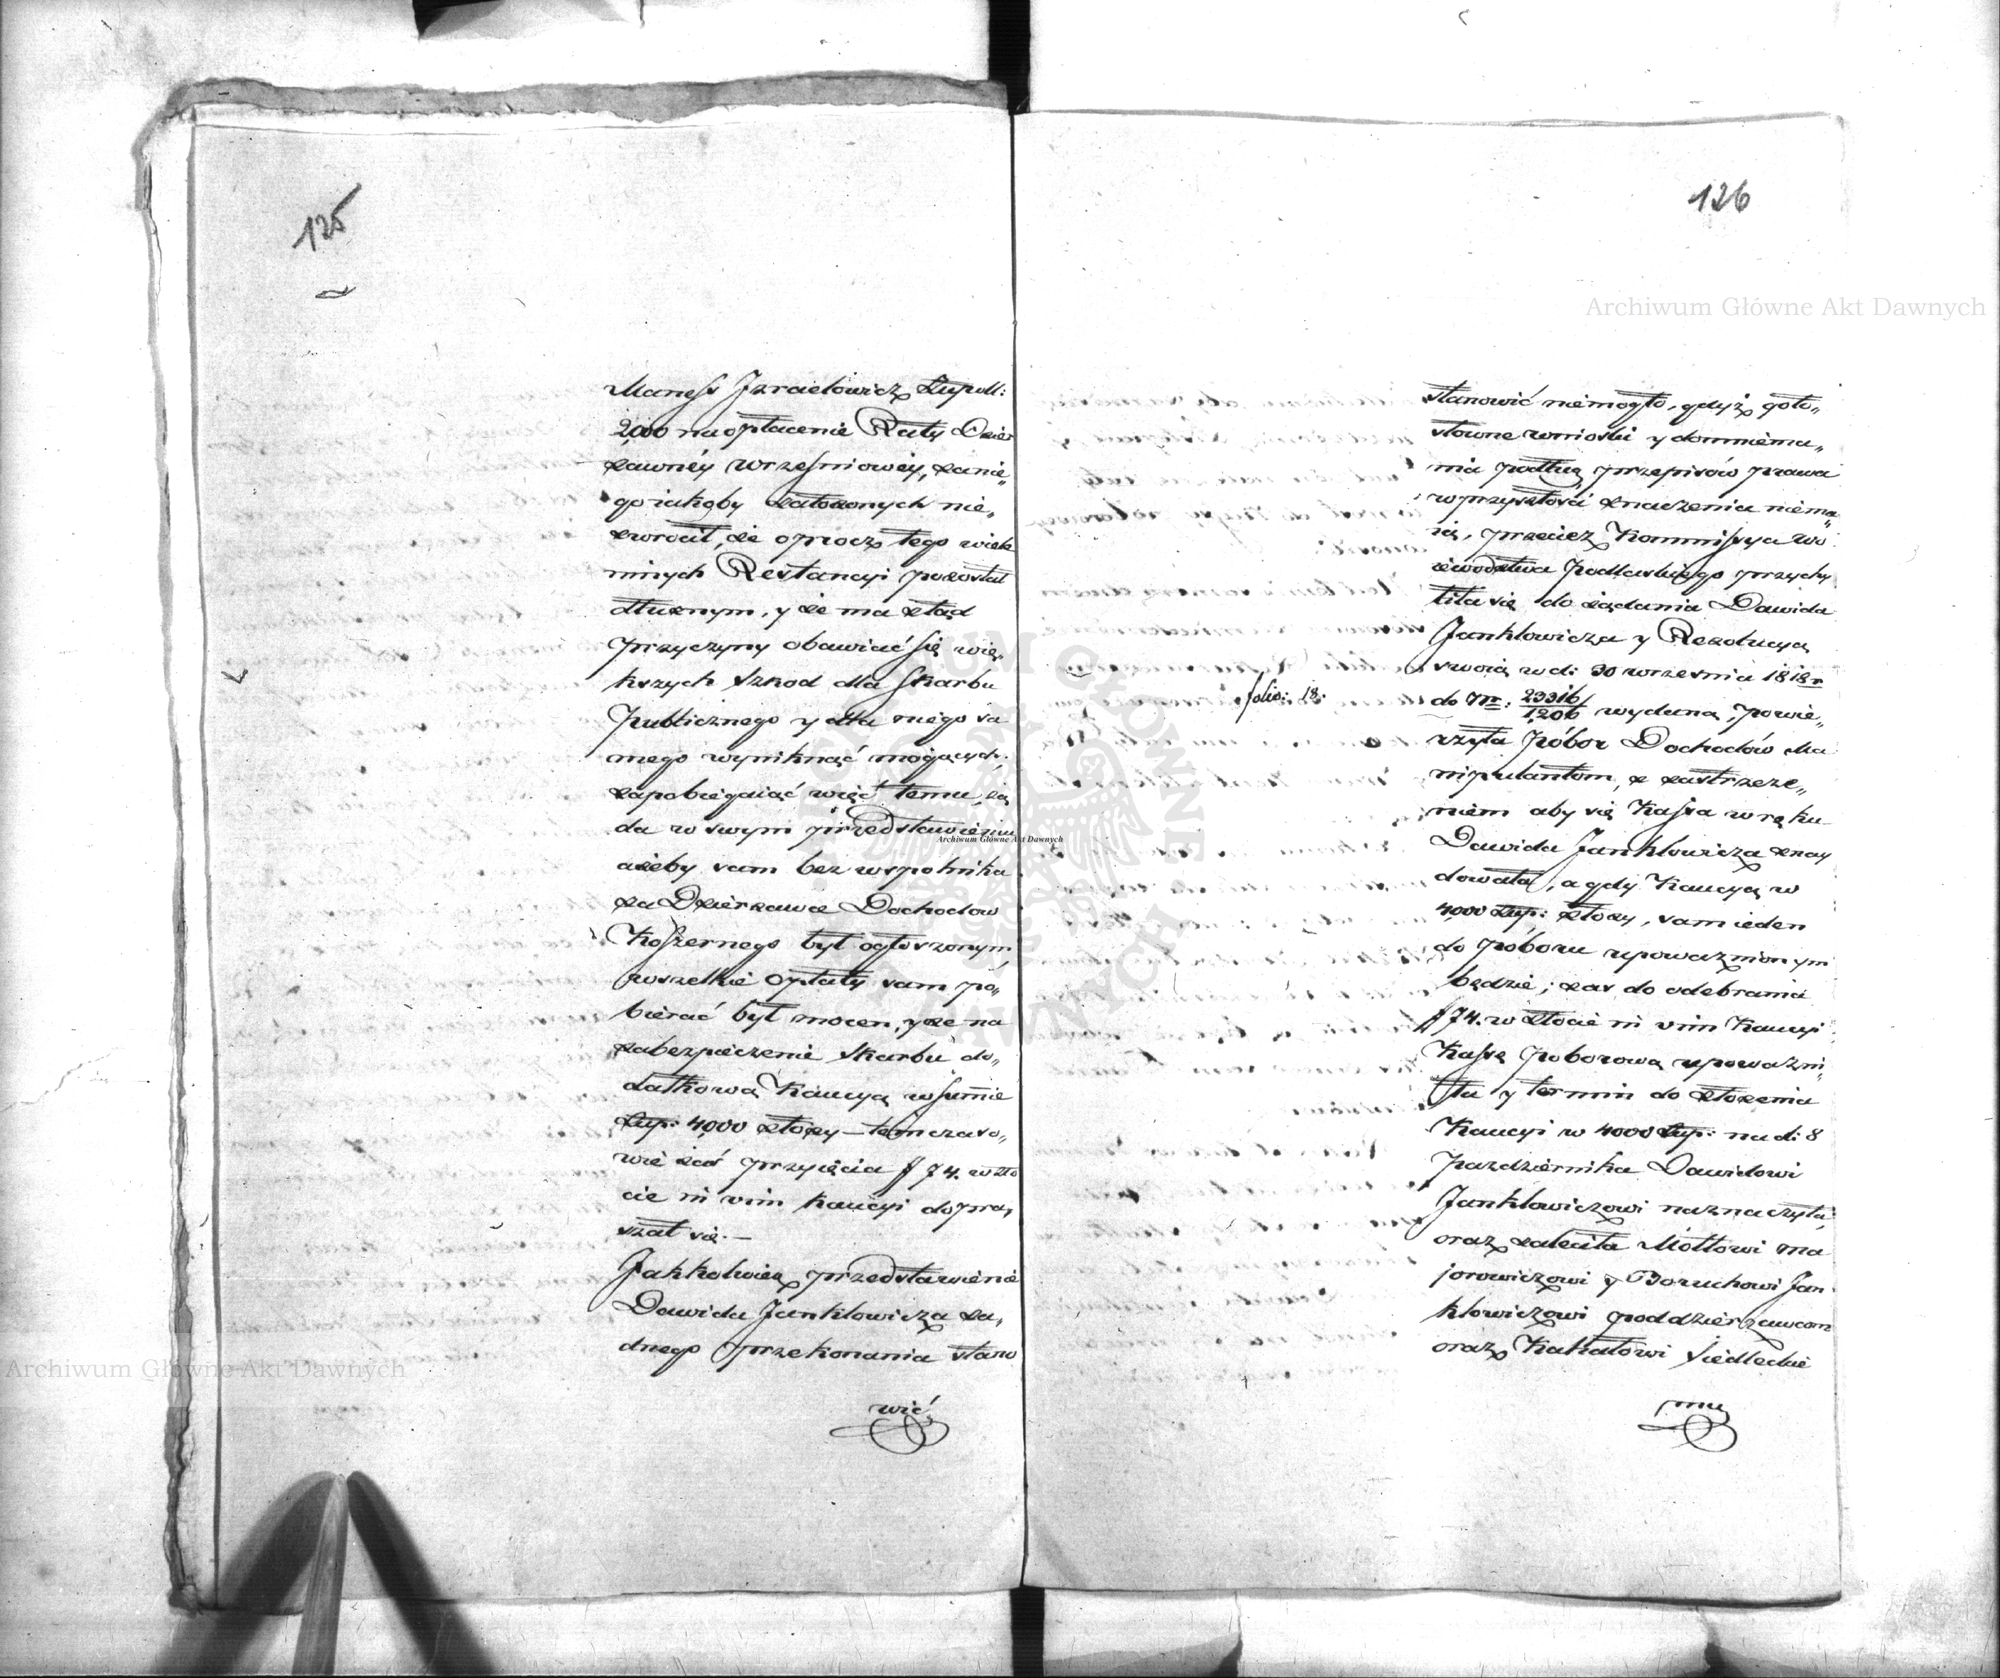 125
Maness Izraelowicz Złupoll:
2,000 na opłacenie Raty Dzier
żawnéy Wrześniowéy, zanie„
go iakoby założonych nie„
zwrócił, że oprócz tego wiele
innych Restancyi pozostał
dłużnym, y że ma ztąd
przyczyny obawiać się wię„
kszych szkod dla Skarbu
Publicznego y dla niego sa
mego wyniknąć mogących;
zapobiegaiąć więć temu, żą
da w swym przedstawieniu
ażeby sam bez wspolnika
za Dzierzawce Dochodow
Koszernego był ogłoszonym,
wszelkie Opłaty sam po„
bierać był mocen, y że na
zabezpieczenie Skarbu do„
datkową Kaucyą w Summie
Złup: 4000 złoży — tem czaso„
wie zaś przyięcia # 74. w zło
cie in vim Kaucyi dopra„
szał się. —
Jakkolwiek przedstawienie
Dawida Janklowicza ża„
dnego przekonania stano
wić
126
stanowić niemogło, gdyż goło„
słowne wnioski y domniema„
nia podług przepisów prawa
w przyszłości znaczenia niema„
ią, przecież Kommissya Wo
iewództwa Podlaskiego przychy
liła się do żądania Dawida
Janklowicza y Rezolucyą
swoią w d: 30 września 1818 r
folio: 18.
do Nr: 23316/1206 wydaną, powie„
rzyła Pobor Dochodów Ma
nipulantom, z zastrzeże„
niem aby się Kassa w ręku
Dawida Janklowicza znay
dowała, a gdy Kaucyą w
4000 Złup: złoży, sam ieden
do poboru upoważnionym
będzie; zas do odebrania
# 74. w złocie in vim Kaucyi
Kassę Poborową upoważni„
ła y termin do złożenia
Kaucyi w 4000 Złup: na d: 8
Pazdziernika Dawidowi
Janklowiczowi naznaczyła,
oraz zaleciła Mottowi Ma
jorowiczowi y Boruchowi Jan
klowiczowi poddzierzawcom
oraz Kahałowi Siedleckie
mu
Archiwum Główne Akt Dawnych
Archiwum Główne Akt Dawnych
Archiwum Główne Akt Dawnych